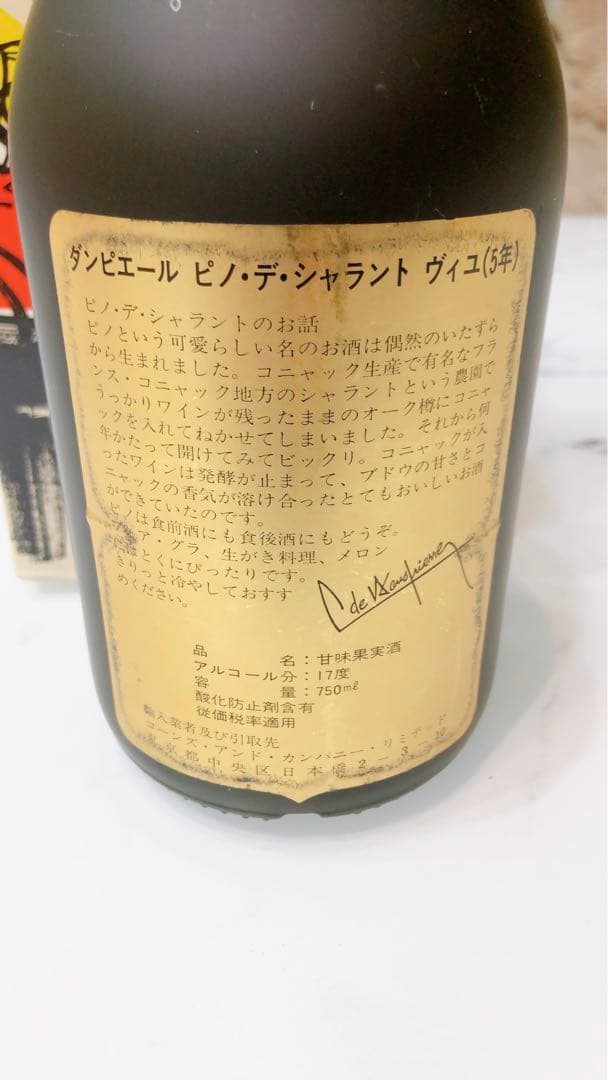 ダンピエール ピノ・デ・シャラント ヴィユ(5年)
ピノ・デ・シャラントのお話
ピノという可愛らしい名のお酒は偶然のいたずら
から生まれました。コニャック生産で有名なフラ
ンス・コニャック地方のシャラントという農園で
うっかりワインが残ったままのオーク樽にコニャ
ックを入れてねかせてしまいました。それから何
年かたって開けてみてビックリ。コニャックが入
ったワインは発酵が止まって、ブドウの甘さとコ
ニャックの香気が溶け合ったとてもおいしいお酒
ができていたのです。
ピノは食前酒にも食後酒にもどうぞ。
ア・グラ、生がき料理、メロン
にはとくにぴったりです。
きりっと冷やしておすす
めください。
品 名:甘味果実酒
アルコール分:17度
容 量:750mℓ
酸化防止剤含有
従価税率適用
輸入業者及び引取先
コーンズ・アンド・カンパニー・リミテッド
東京都中央区日本橋2-3-10